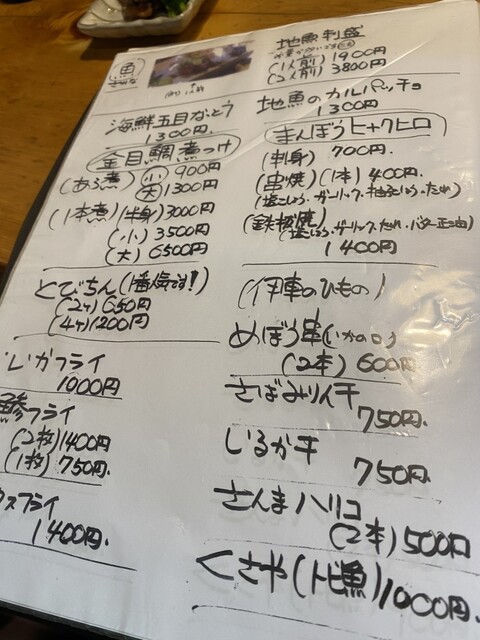 魚
海鮮五目なっとう
1300円
金目鯛煮つけ
(あら煮) (小) 900円
(大) 1300円
(1本煮) (半身) 3000円
(小) 3500円
(大) 6500円
とびちん (1番人気です!)
(2ヶ) 650円
(4ヶ) 1200円
いかフライ
1000円
鯵フライ
(2枚) 1400円
(1枚) 750円.
フライ
1400円.
地魚刺盛
(1人前) 1900円
(2人前) 3800円
地魚のカルパッチョ
1300円
まんぼうヒャクヒロ
(刺身) 700円.
(串焼) (1本) 400円.
(塩こしょう.ガーリック.柚子こしょう.たれ)
(鉄板焼)
(塩こしょう.ガーリック.たれ.バター正油)
1400円
(伊東のひもの)
めぼう串(いかの口)
(2本) 600円
さばみりん干
750円.
いるか干
750円.
さんまハリコ
(2本) 500円
くさや(トビ魚) 1000円.